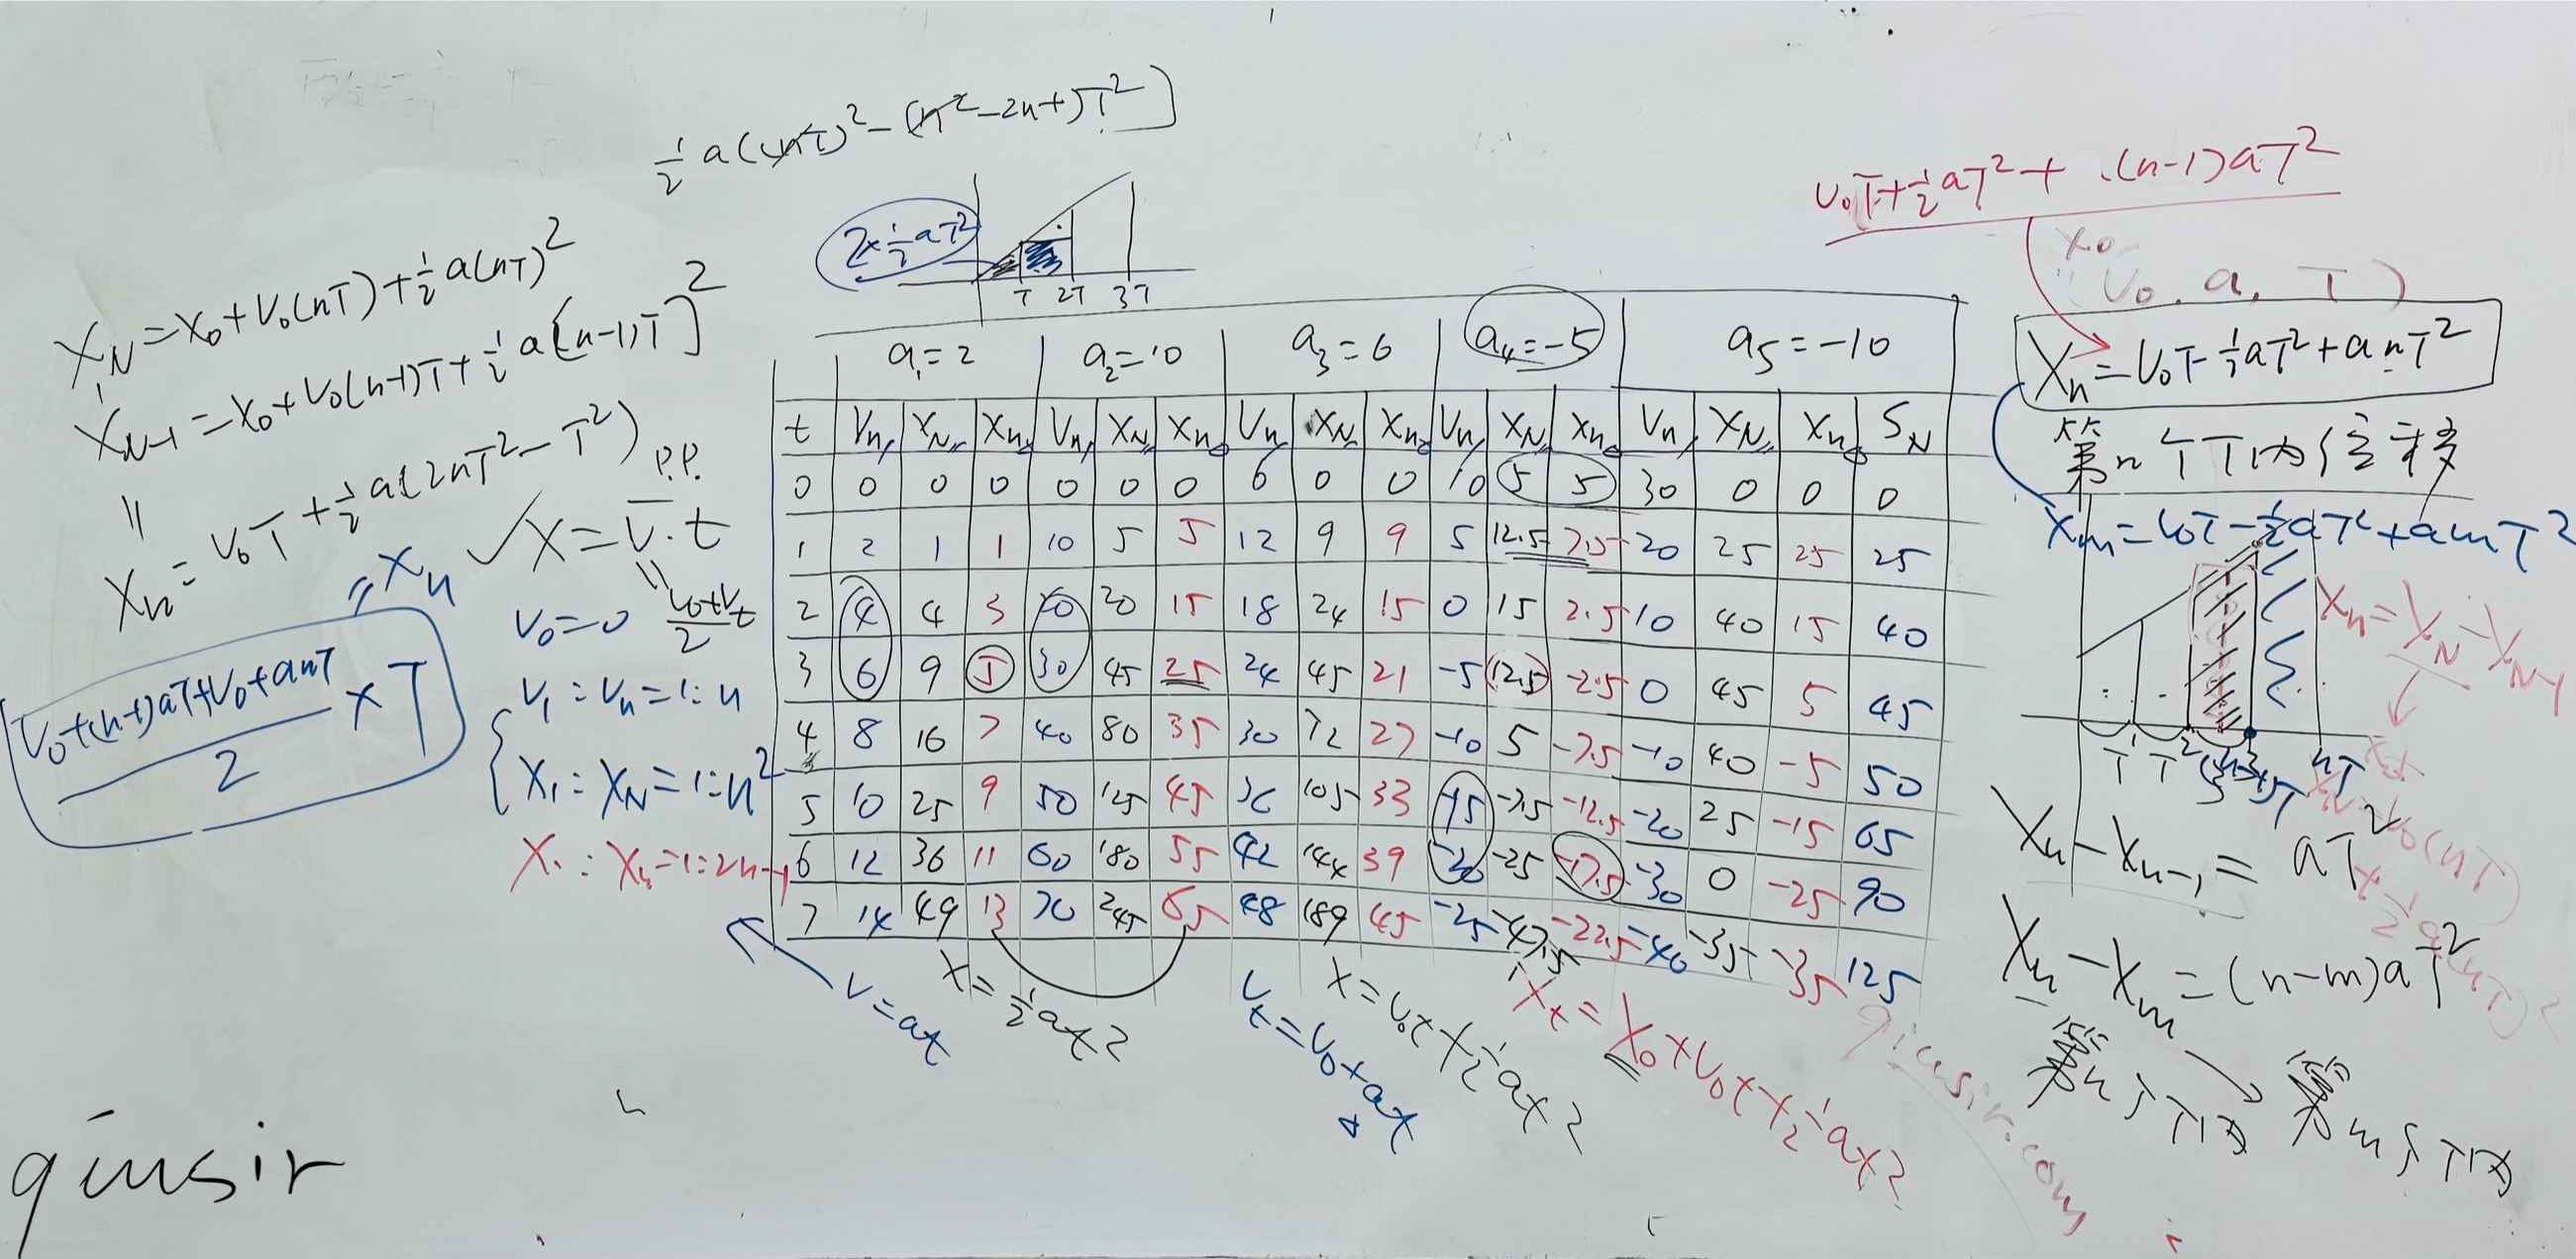 ½a(nT)²-(n²-2n+)T²]
2×½aT²
T 2T 3T
X_N=X₀+V₀(nT)+½a(nT)²
X_N-1=X₀+V₀(n-1)T+½a[(n-1)T]²
=
Xn=V₀T+½a(2nT²-T²)
P.P.
✓X=V̄·t
=
(V₀+Vt)/2
=Xn
(V₀+(n-1)aT+V₀+anT)/2 ×T
V₀=0
V₁:Vn=1:n
X₁:X_N=1:n²
X₁:Xn=1:2n-1
a₁=2 a₂=10 a₃=6 a₄=-5 a₅=-10
t Vn X_N Xn Vn X_N Xn Vn X_N Xn Vn X_N Xn Vn X_N Xn S_N
0 0 0 0 0 0 0 6 0 0 10 5 5 30 0 0 0
1 2 1 1 10 5 5 12 9 9 5 12.5 7.5 20 25 25 25
2 4 4 3 20 20 15 18 24 15 0 15 2.5 10 40 15 40
3 6 9 5 30 45 25 24 45 21 -5 12.5 -2.5 0 45 5 45
4 8 16 7 40 80 35 30 72 27 -10 5 -7.5 -10 40 -5 50
5 10 25 9 50 125 45 36 105 33 -15 -7.5 -12.5 -20 25 -15 65
6 12 36 11 60 180 55 42 144 39 -20 -25 -17.5 -30 0 -25 90
7 14 49 13 70 245 65 48 189 45 -25 -47.5 -22.5 -40 -35 -35 125
V=at
X=½at²
Vt=V₀+at
X=V₀t+½at²
Xt=X₀+V₀t+½at²
V₀T+½aT²+(n-1)aT²
X₀
(V₀, a, T)
Xn=V₀T-½aT²+anT²
第n个T内位移
Xm=V₀T-½aT²+amT²
Xn=X_N-X_N-1
T T nT
Xn-Xn-1=aT²
Xn-Xm=(n-m)aT²
第n个T内 第m个T内
qiusir.com
qiusir